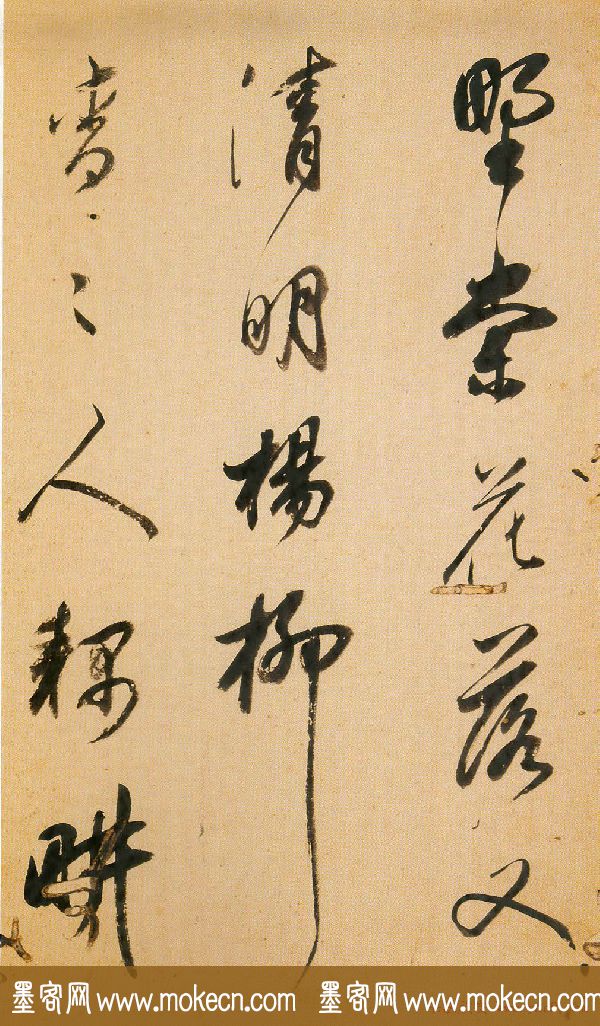 野棠花落又
清明楊柳
〻人耦畊
墨客网 www.mokecn.com 墨客网 www.mokecn.com